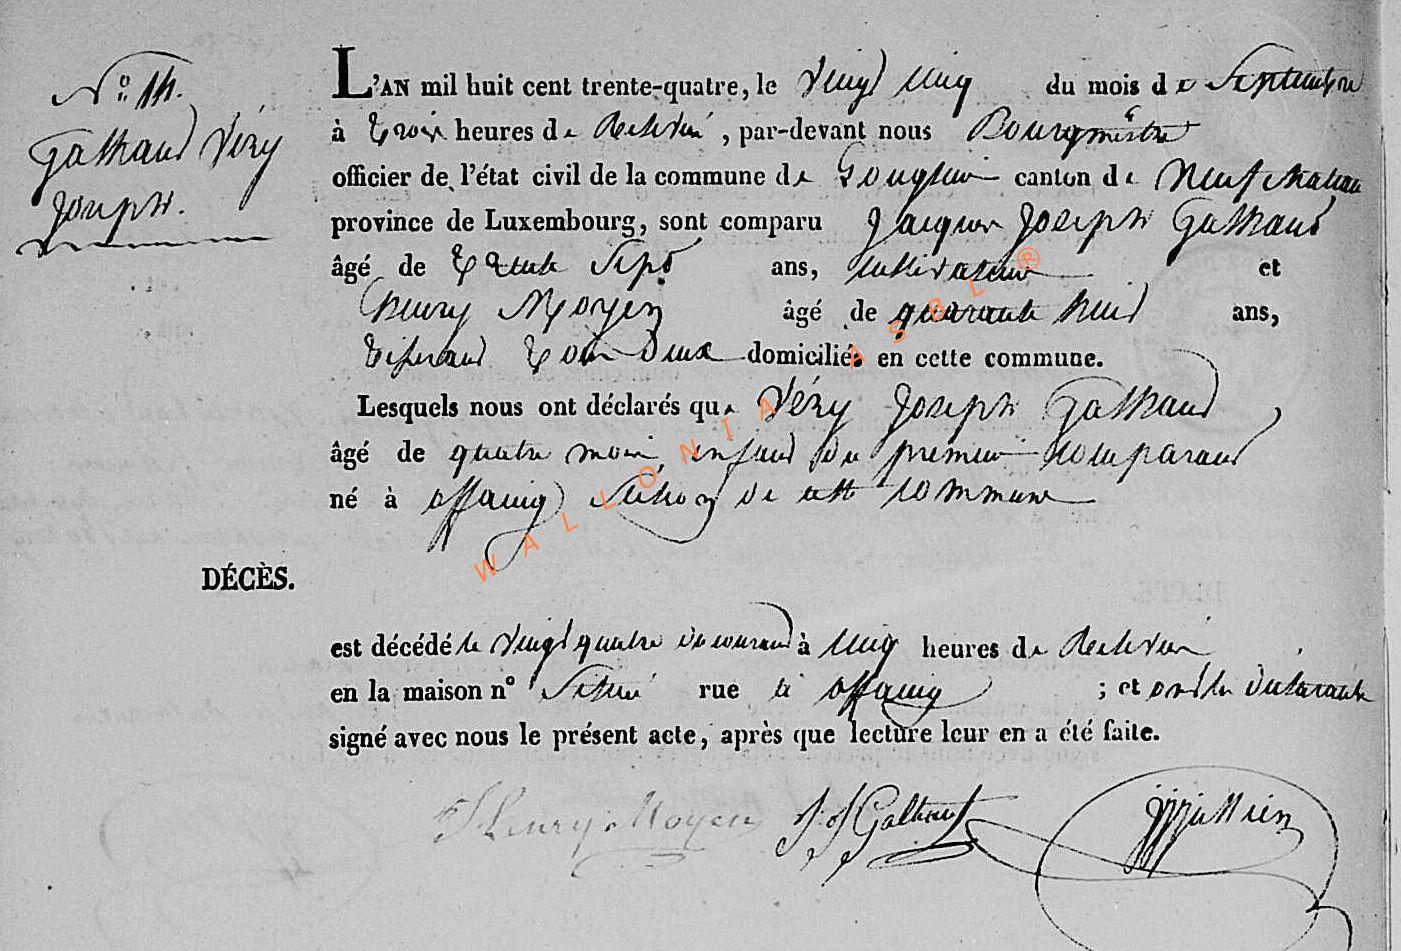 N° 14.
Gathaud Véry
Joseph.
L'AN mil huit cent trente-quatre, le Vingt cinq du mois de Septembre
à Trois heures de Relevée, par-devant nous Bourgmestre
officier de l'état civil de la commune de canton de Neufchateau
province de Luxembourg, sont comparu Jacques Joseph Gathaud
âgé de Trente Sept ans, cultivateur et
henry Moyen âgé de quarante huit ans,
Tisserand Tous Deux domiciliés en cette commune.
Lesquels nous ont déclarés que Véry Joseph Gathaud,
âgé de quatre mois, enfant du premier comparant
né à offaing Section de cette commune
DÉCÈS.
est décédé le vingt quatre du courant à cinq heures de Relevée
en la maison n° Située rue à offaing ; et ont les déclarants
signé avec nous le présent acte, après que lecture leur en a été faite.
henry Moyen J J Gathaud
WALLONIA ASBL ®